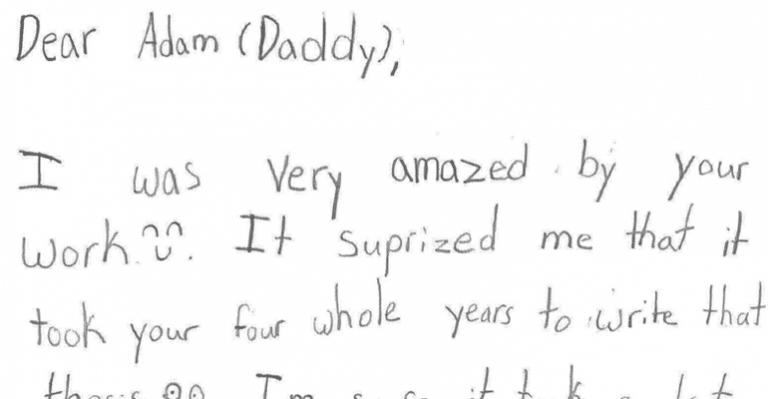 Dear Adam (Daddy),
I was very amazed by your
work. It suprized me that it
took your four whole years to write that
I'm it